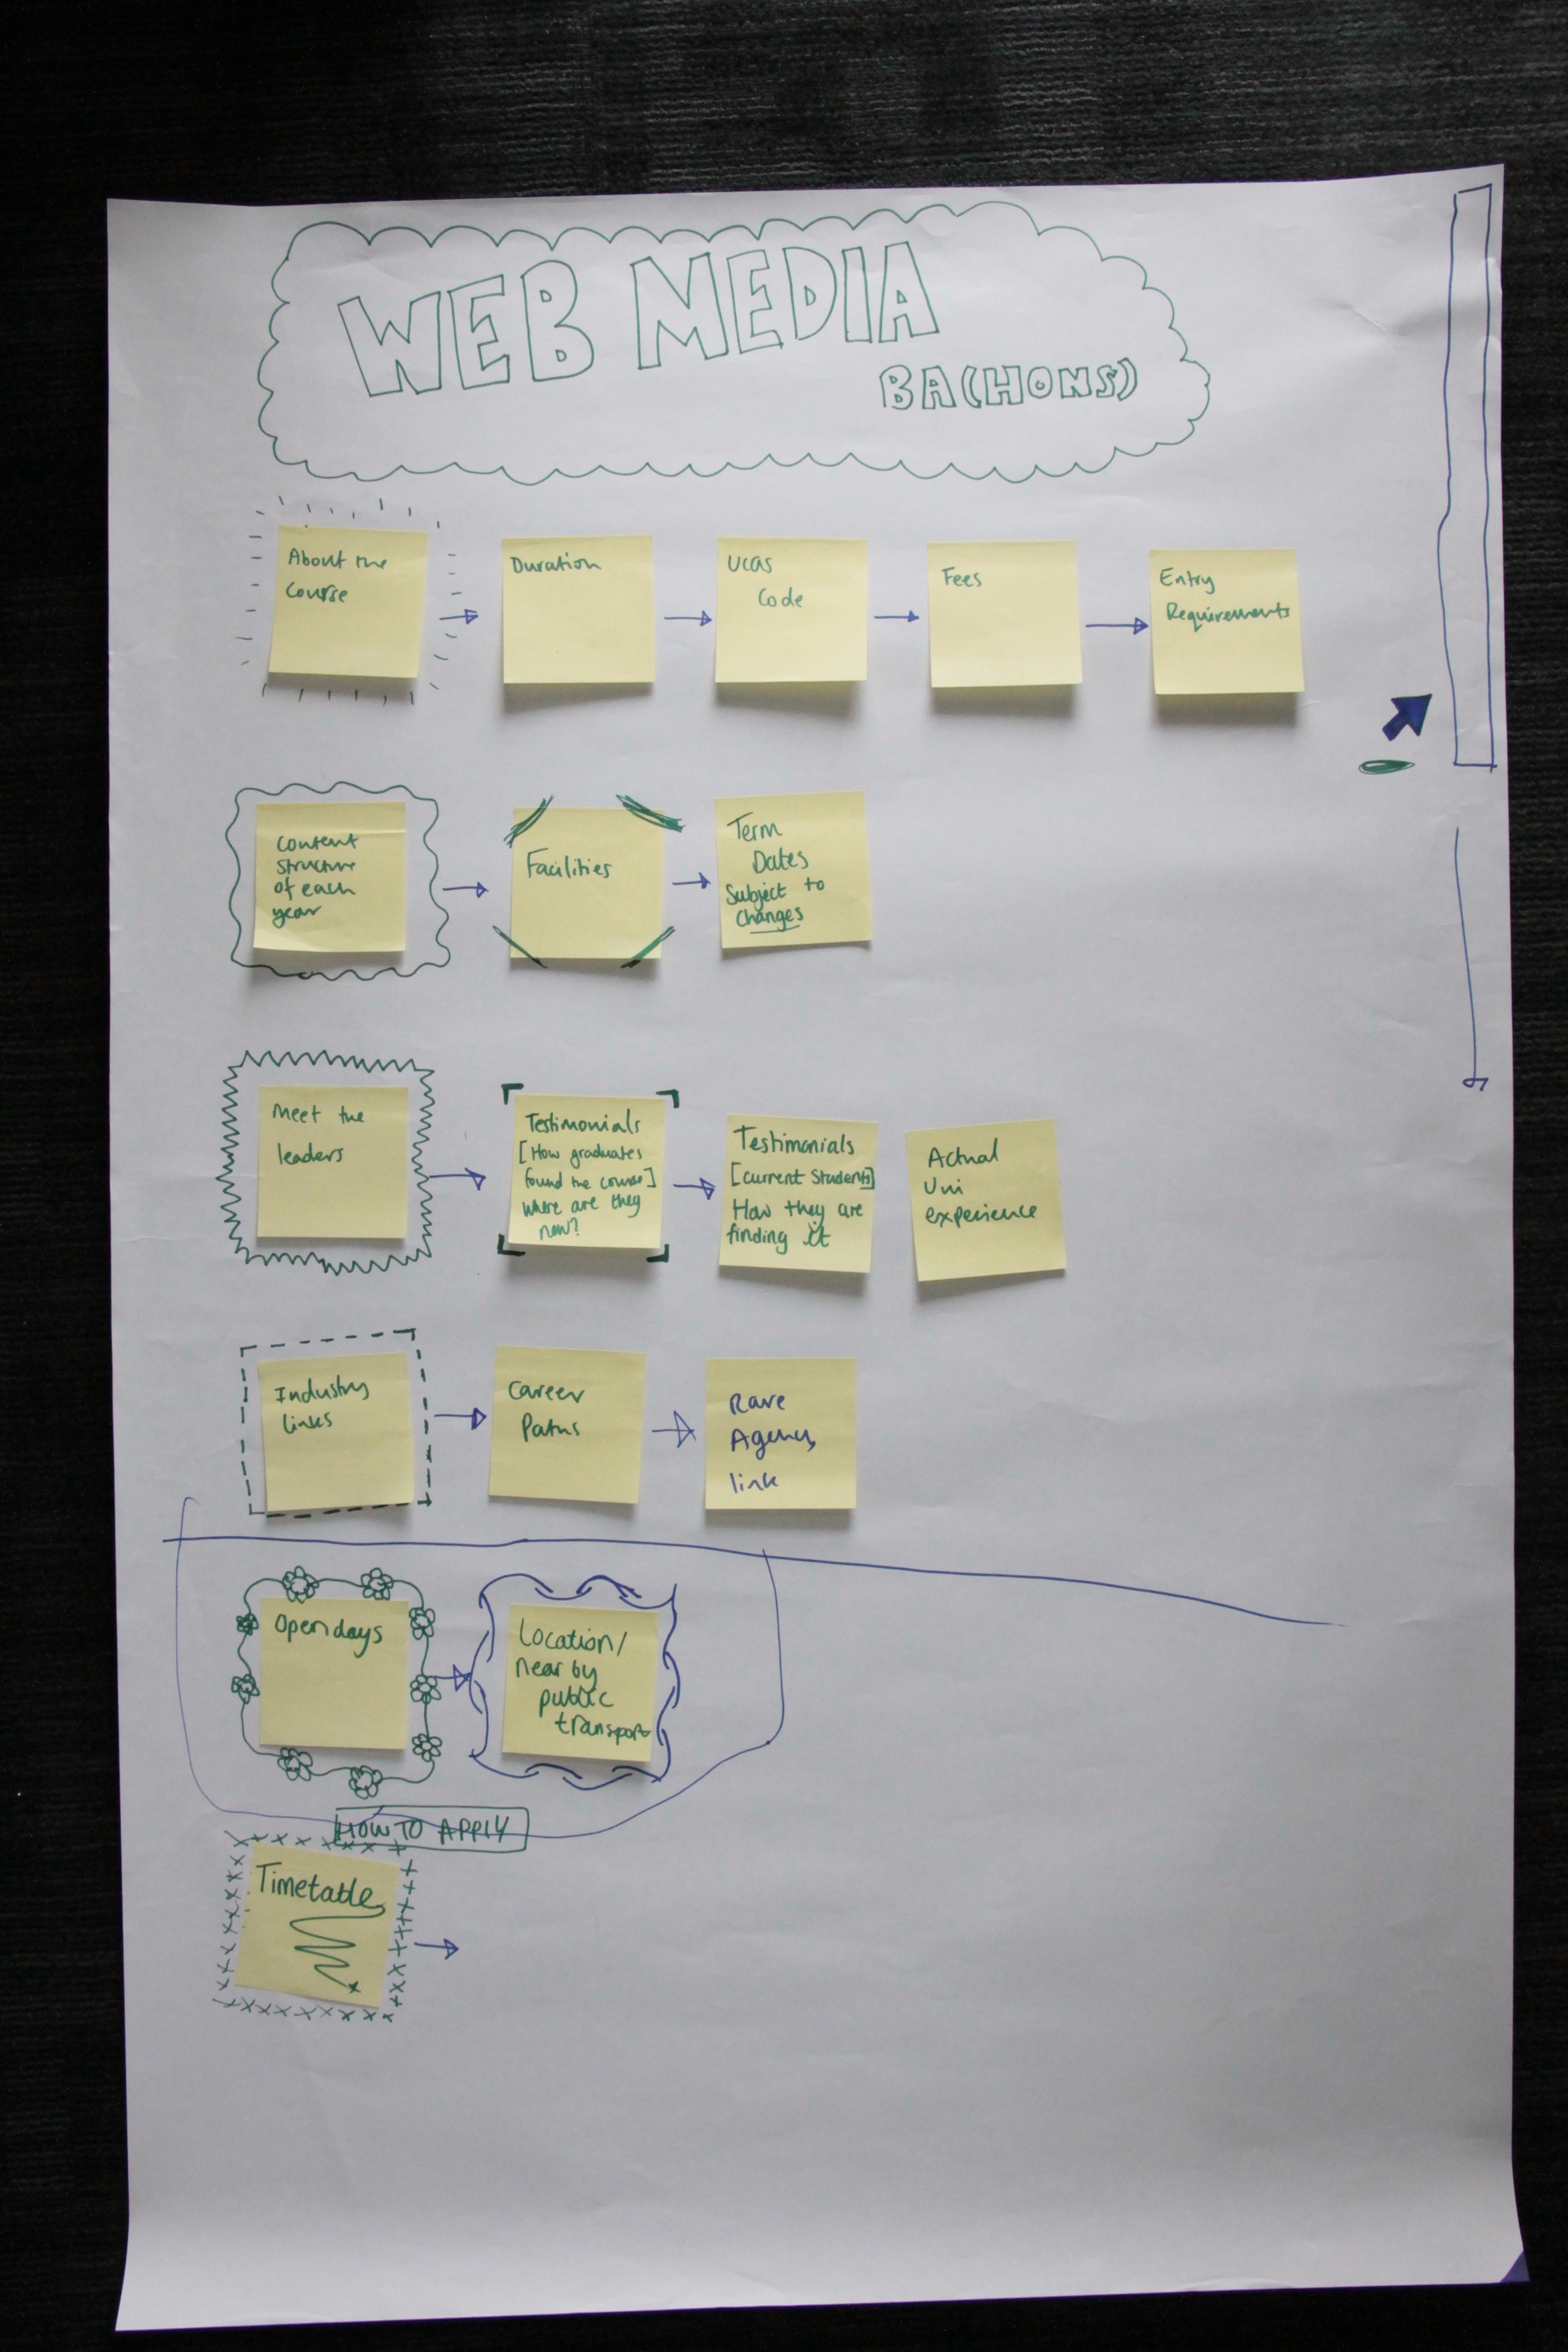 WEB MEDIA
BA(HONS)
About the
Course
Duration
UCAS
Code
Fees
Entry
Requirements
Content
Structure
of each
year
Facilities
Term
Dates
Subject to
Changes
Meet the
leaders
Testimonials
[How graduates
found the course]
where are they
now?
Testimonials
[current Students]
How they are
finding it
Actual
Uni
experience
Industry
links
Career
Paths
Rave
Agency
link
Open days
Location/
near by
public
transport
HOW TO APPLY
Timetable